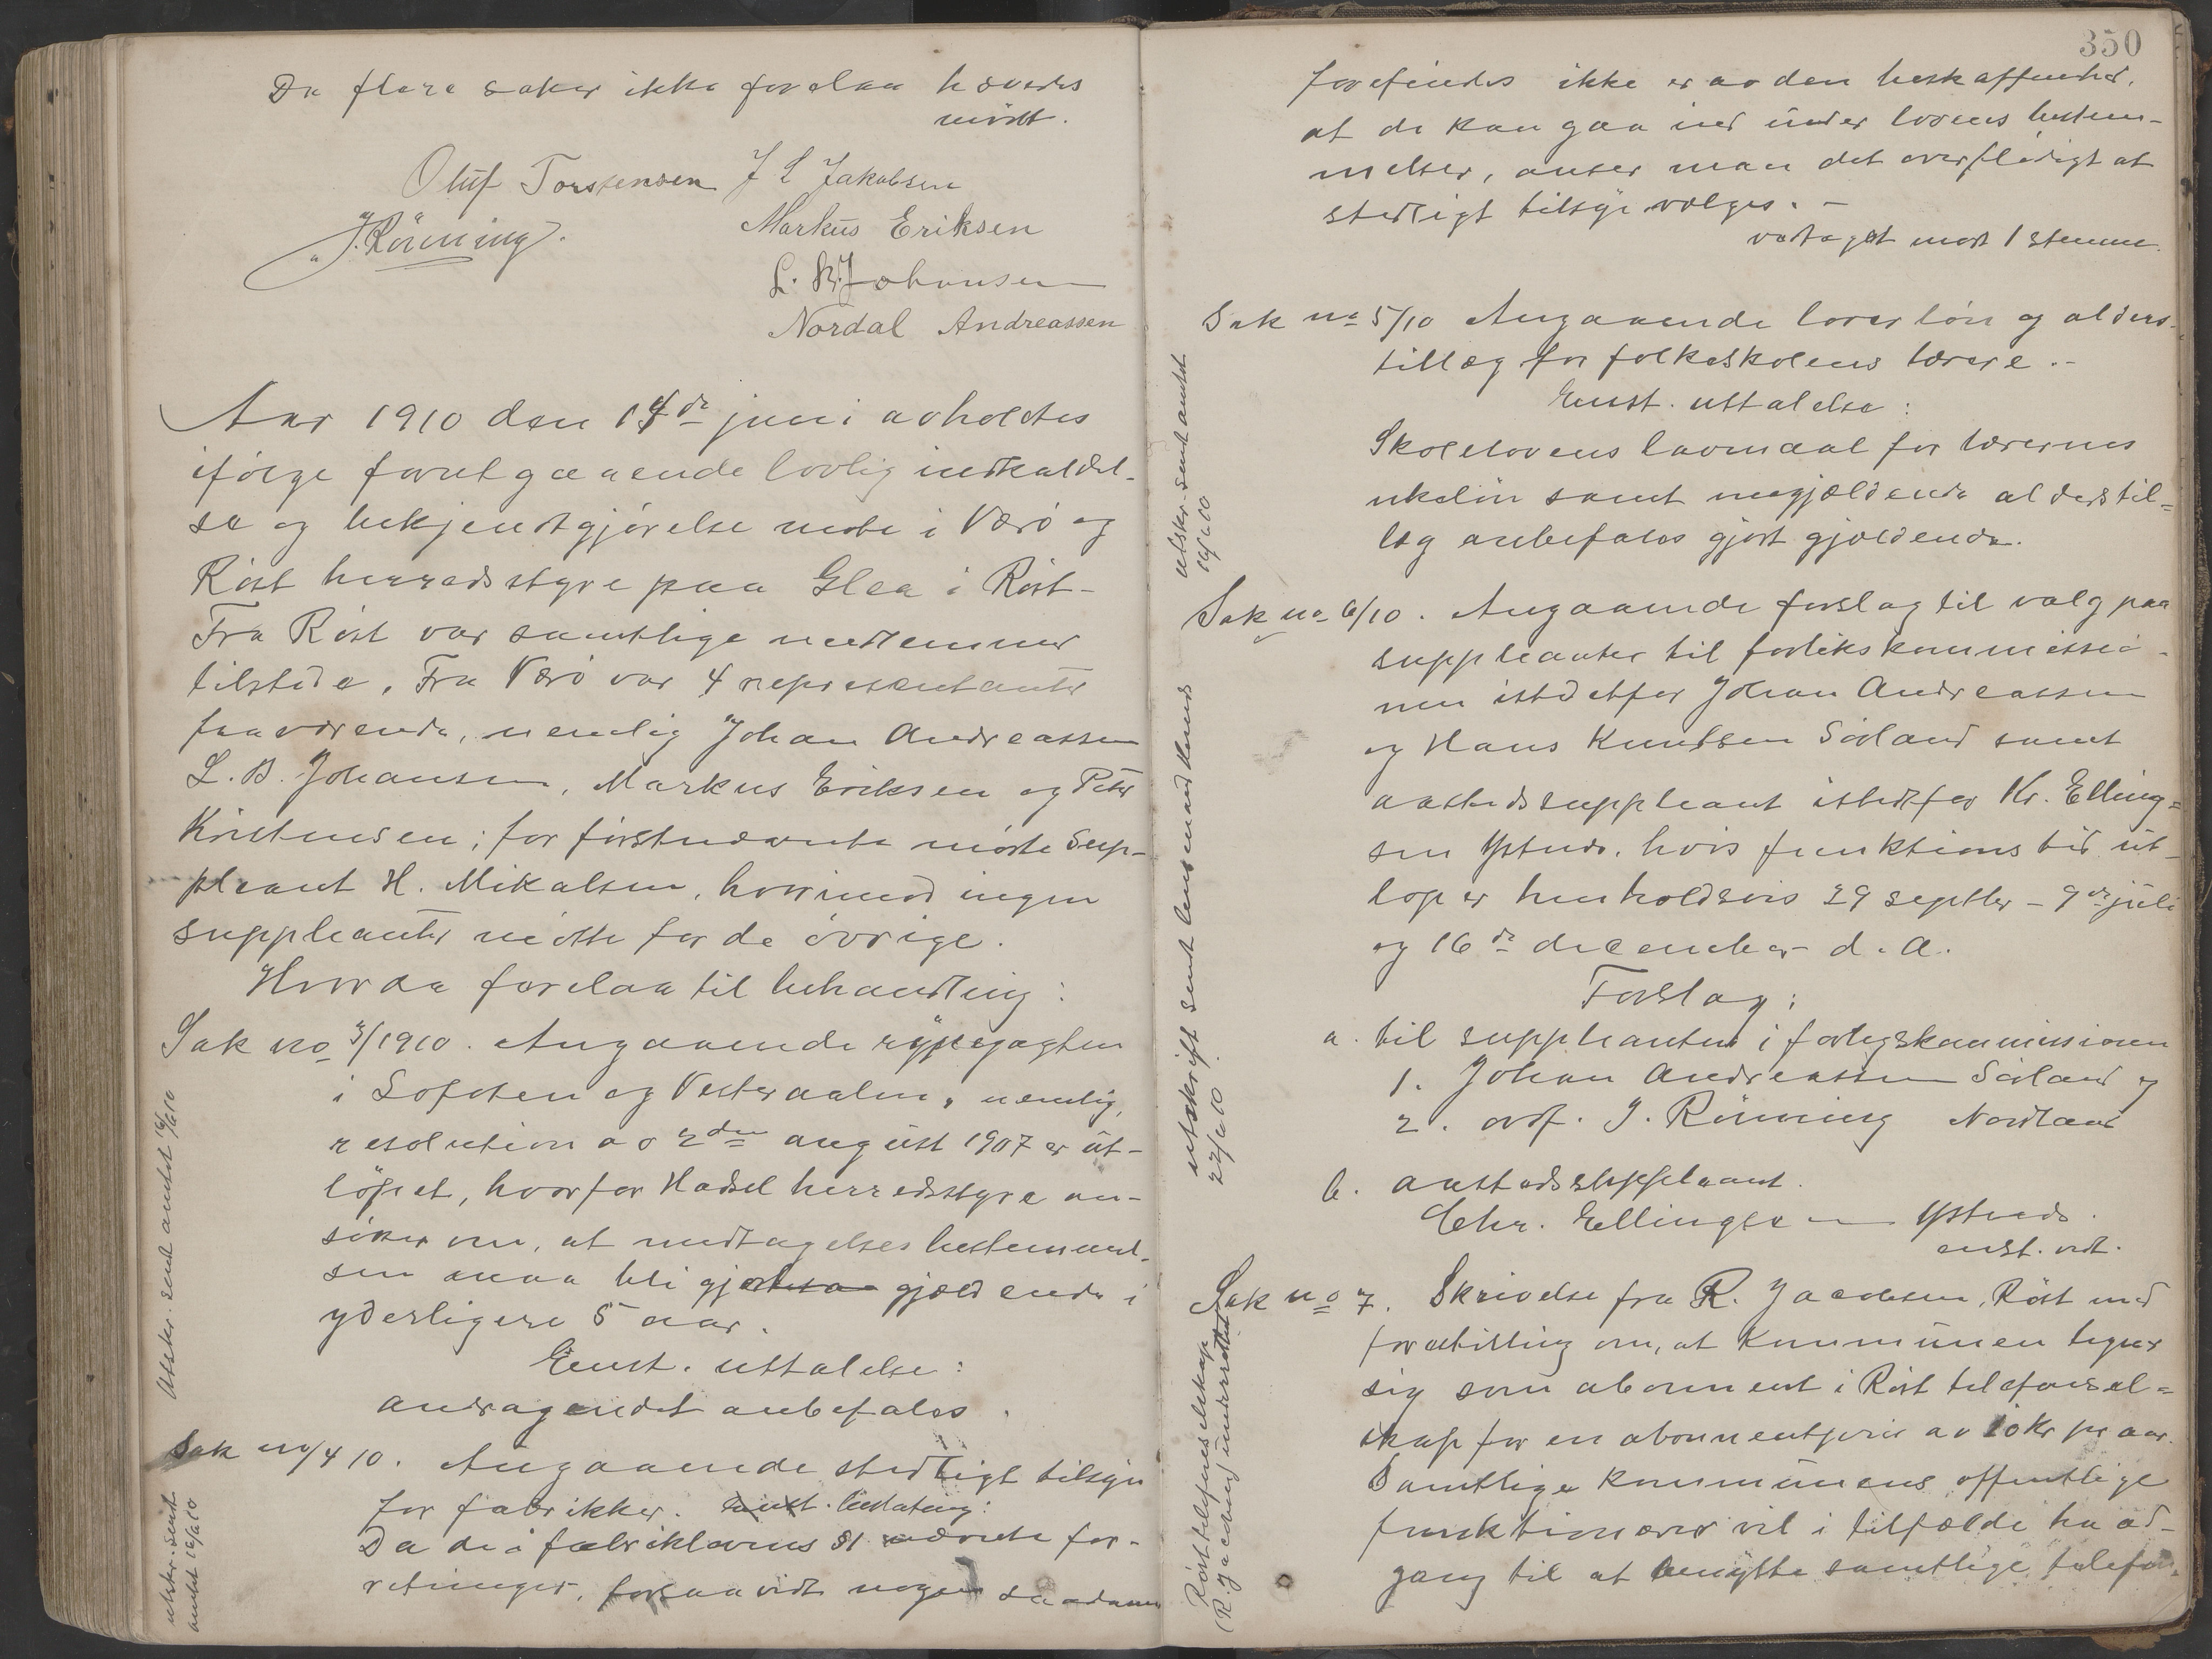 Da flere saker ikke forelaa hævedes
mödet.
Oluf Torstensen J L Jakobsen
J. Rönning. Markus Eriksen
L. B. Johansen
Nordal Andreassen
Aar 1910 den 14de juni avholdtes
ifölge forutgaaende lovlig indkaldel-
se og bekjendtgjörelse möte i Værö og
Röst herredsstyre paa Glea i Röst-
Fra Röst var samtlige medlemmer
tilstede. Fra Værö var 4 repræsentanter
fraværende, nemlig Johan Andreassen
L. B. Johansen, Markus Eriksen og Peter
Kristensen; for förstnævnte mötte sup-
pleant H. Mikalsen, hvorimod ingen
suppleanter mötte for de övrige.
Hvorda forelaa til behandling:
Sak no 3/1910. Angaaende rypejagten
i Lofoten og Vesteraalen, nemlig,
resolution av 2den august 1907 er ut-
löpet, hvorfor Hadsel herredsstyre an-
söker om, at undtagelsesbestemmel-
sen maa bli gjældende i
yderligere 5 aar.
Enst. uttalelse:
andragendet anbefales.
Utskr. sendt amtet 16/6 10
Sak no 4/10. Angaaende stedligt tilsyn
for fabrikker. Enst. beslutning:
Da de i fabriklovens §1 nævnte for-
retninger, forsaavidt nogen saadanne
utskr. sendt
amtet 16/6 10
350
forefindes ikke er av den beskaffenhed,
at de kan gaa ind under lovens bestem-
melser, anser man det overflödigt at
stedligt tilsyn vælges. -
vedtaget mot 1 stemme.
Sak no 5/10 Angaaende lærerlön og alders-
tillæg for folkeskolens lærere.-
Enst. uttalelse:
Skolelovens lavmaal for lærernes
ukelön samt nugjældende alderstil=
læg anbefales gjort gjældende.
utskr. sendt amtet
16/6 10
Sak no 6/10. Angaaende forslag til valg paa
suppleanter til forlikskommissio-
nen istedetfor Johan Andreassen
og Hans Knudsen Sörland samt
aastedssuppleant istedetfor Kr. Elling=
sen Ystnes. hvis funktionstid ut-
löper henholdsvis 29 septbr - 9de juli
og 16de december d. A.
Forslag:
a. til suppleanter i forligskommissionen
1. Johan Andreassen Sörland og
2. ordf. J. Rönning Nordland
b. aastedssuppleant.
Chr. Ellingsen Ystnes.
enst. vedt.
utskrift sendt lensmand
22/6 10.
Sak no 7. Skrivelse fra R. Jacobsen, Röst med
forestilling om, at kommunen tegner
sig som abonnent i Röst telefonsel=
skap for en abonnentpris av 10 kr pr aar.
Samtlige kommunens offentlige
funktionærer vil i tilfælde ha ad-
gang til at benytte samtlige telefon-
Röst telefonselskap
(R. Jacobsen) underrettet